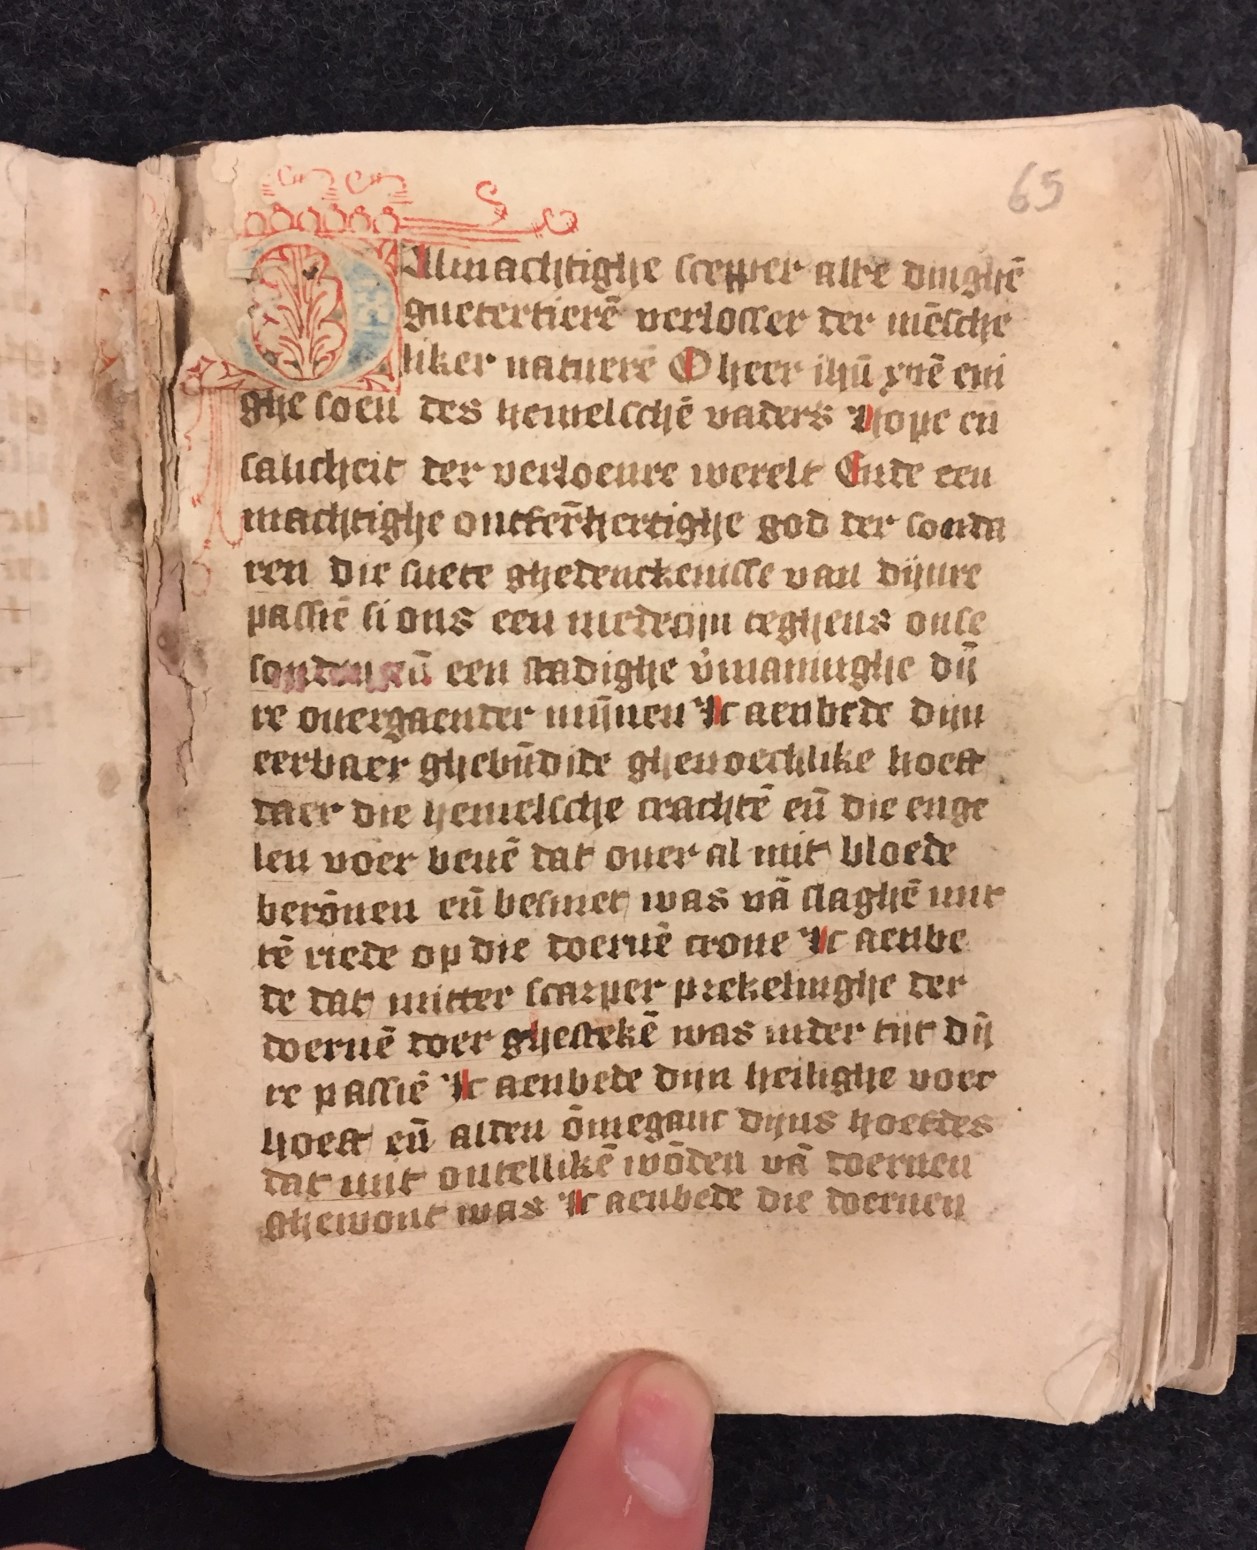 65
O Almachtighe scepper alre dinghē
guetertierē verlosser der mēsche
liker natuerē O heer ihū xp̄e eni
ghe soen des hemelschē vaders Hope en̄
salicheit der verloenre werelt Ende een
machtighe ontfer̄hertighe god der sonda
ren die suete ghedenckenisse van dijnre
passiē si ons een medecijn teghens onse
sonden en̄ een stadighe v̄maninghe dij̄
re ouergaender mij̄nen Ic aenbede dijn
eerbaer ghebn̄dide ghenoechlike hoeft
daer die hemelsche crachtē en̄ die enge
len voer beuē dat ouer al mit bloede
berōnen en̄ besmet was vā slaghē mit
tē riede op die doernē crone Ic aenbe
de dat mitter scarper prekelinghe der
doernē doer ghestekē was inder tijt dij̄
re passiē Ic aenbede dijn heilighe voer
hoeft en̄ alden ōmeganc dijns hoefdes
dat mit ontellikē wōden vā doernen
ghewont was Ic aenbede die doernen